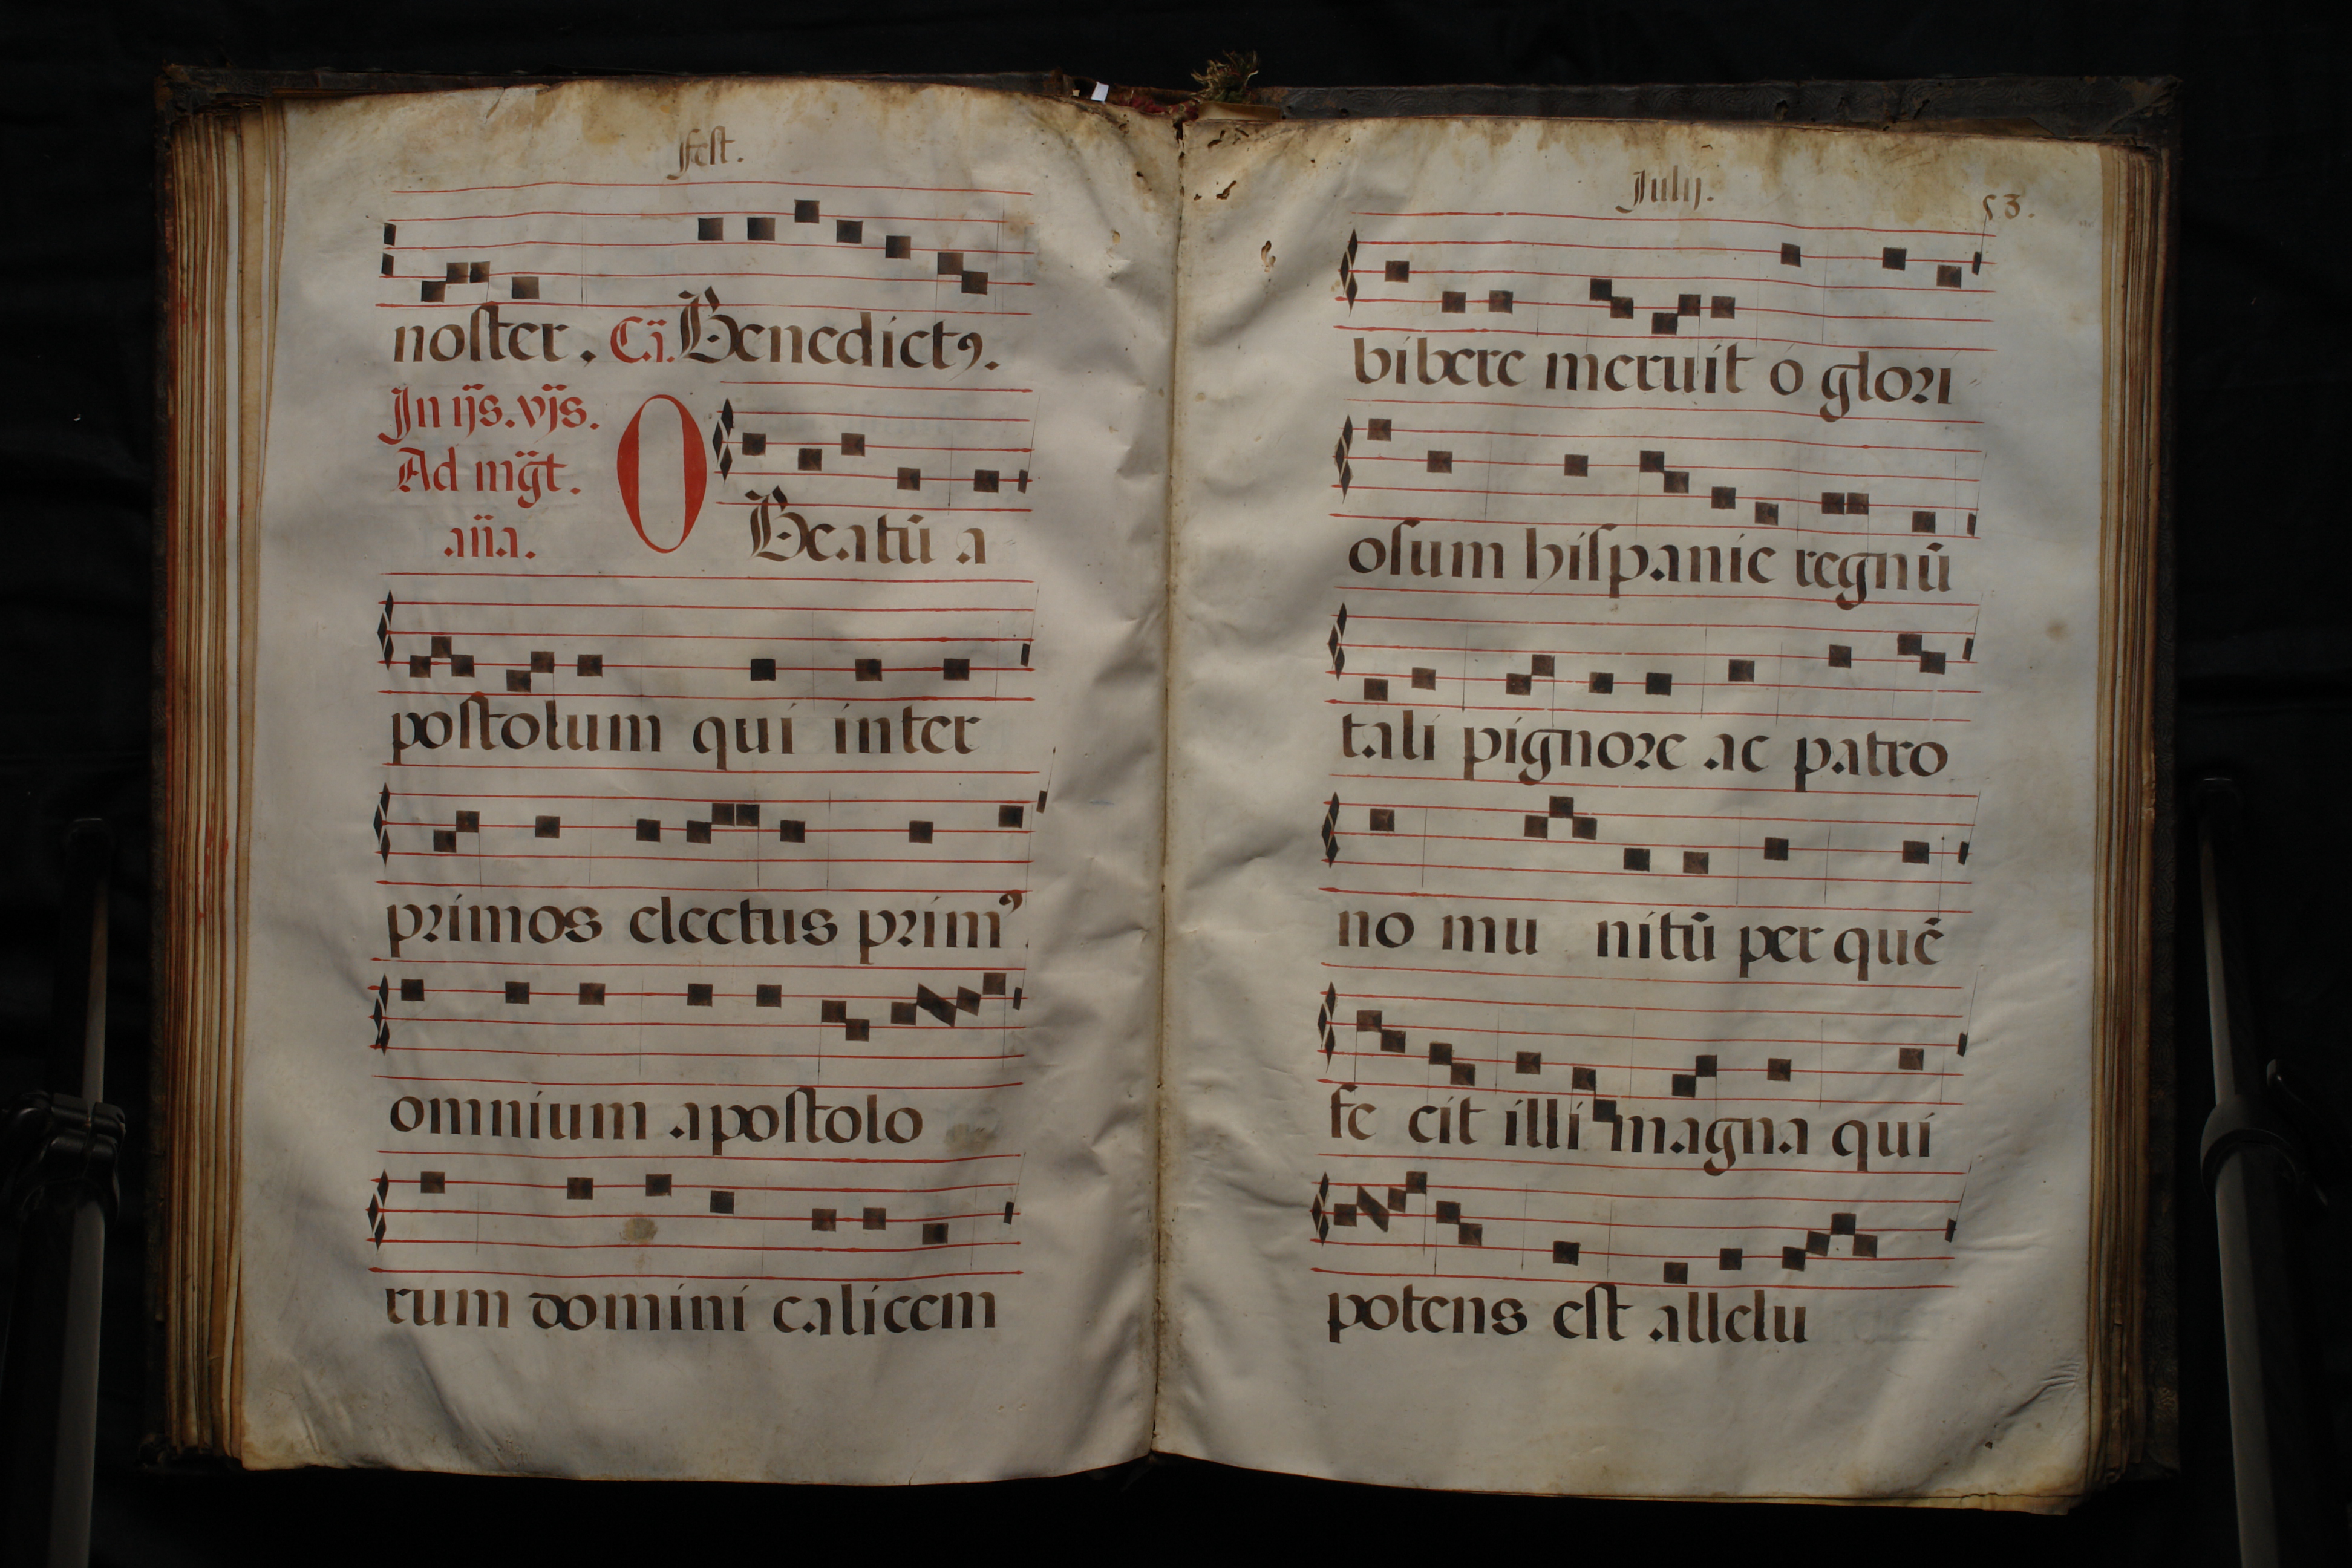 fest.
noster. C.ı̈. Benedictꝯ.
In ij̈s. vj̈s.
Ad mg̈t.
an̈a.
O Beatū a
postolum qui inter
primos electus primꝰ
omnium apostolo
rum domini calicem
July.
53.
bibere meruit o glori
osum hispanie regnū
tali pignore ac patro
no mu nitū per quē
fe cit illi magna qui
potens est allelu